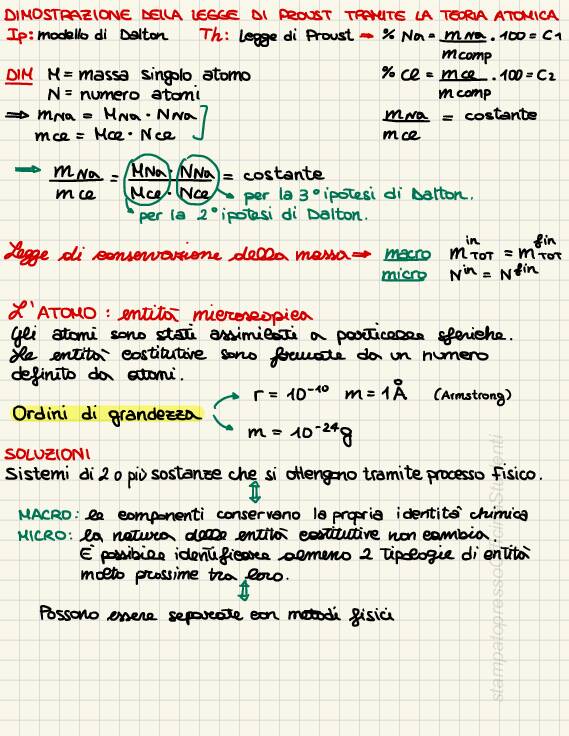 DIMOSTRAZIONE DELLA LEGGE DI PROUST TRAMITE LA TEORIA ATOMICA
Ip: modello di Dalton Th: Legge di Proust → % Na = mNa / mcomp · 100 = C1
% Cl = mCl / mcomp · 100 = C2
DIM M = massa singolo atomo
N = numero atomi
⇒ mNa = MNa · NNa
mCl = MCl · NCl
mNa / mCl = costante
⇒ mNa / mCl = MNa / MCl · NNa / NCl = costante
per la 3° ipotesi di Dalton.
per la 2° ipotesi di Dalton.
Legge di conservazione della massa ⇒ macro m in TOT = m fin TOT
micro N in = N fin
L'ATOMO: entità microscopica
Gli atomi sono stati assimilati a particelle sferiche.
Le entità costitutive sono formate da un numero
definito da atomi.
Ordini di grandezza
r = 10⁻¹⁰ m = 1Å (Armstrong)
m = 10⁻²⁴g
SOLUZIONI
Sistemi di 2 o più sostanze che si ottengono tramite processo fisico.
⇕
MACRO: le componenti conservano la propria identità chimica
MICRO: la natura delle entità costitutive non cambia.
È possibile identificare almeno 2 tipologie di entità
molto prossime tra loro.
⇕
Possono essere separate con metodi fisici